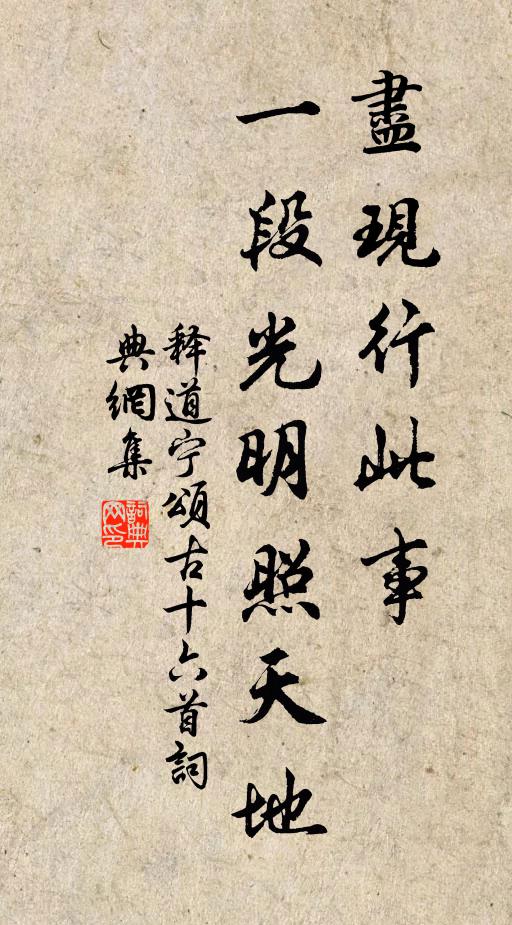 盡現行此事
一段光明照天地
释道宁頌古十六首詞
典網集
詞典网印